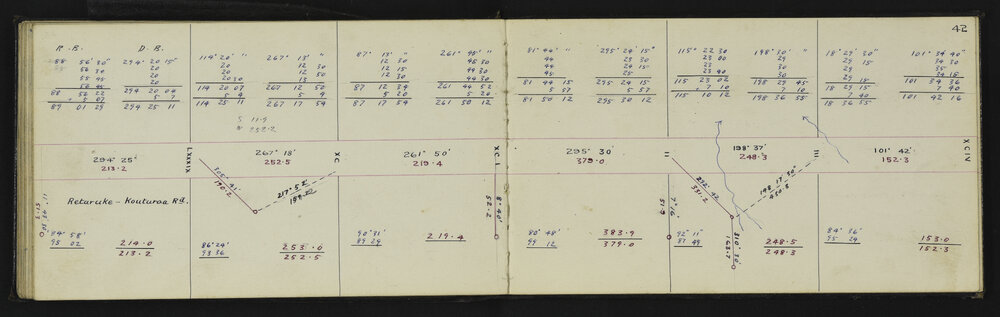 42
R.B. D.B.
88 56' 30" 294° 20' 15"
56 30 20
55 45 20
56 45 20
88 56 22 294 20 04
5 07 5 7
89 01 29 294 25 11
114° 20' " 267° 13' "
20 12 30
20 12 50
20 30 13
114 20 07 267 12 50
5 4 5 4
114 25 11 267 17 54
S 11.9
87° 13' " 261° 45' "
12 30 45 30
12 15 44 30
12 30 44 30
87 12 34 261 44 52
5 20 5 20
87 17 54 261 50 12
81° 44' " 295° 24' 15"
44 25 30
44 24 15
45 25
81 44 15 295 24 15
5 57 5 57
81 50 12 295 30 12
115° 22 30 198° 30' "
23 00 29
23 30
23 40 29
115 23 02 198 29 45
7 10 7 10
115 10 12 198 36 55
18° 29' 30" 101° 34' 40"
29 15 34 30
30 35
29 15 34 18
18 29 15 101 34 36
7 40 7 40
18 36 55 101 42 16
294° 25'
213.2
LXXXIX
267° 18'
252.5
XC
261° 50'
219.4
XCI
295° 30'
379.0
II
198° 37'
248.3
III
101° 42'
152.3
XCIV
305° 41'
190.2
217° 52'
8° 40'
52.2
272° 42'
351.2
148° 17' 30"
450.3
Retaruke - Kouturoa Rd.
51.3
7° 16'
51.9
310° 30'
163.7
84° 58'
95 02
214.0
213.2
86° 24'
93 36
253.0
252.5
90° 31'
89 29
219.4
80° 48'
99 12
383.9
379.0
92° 11'
87 49
248.5
248.3
84° 36'
95 24
153.0
152.3